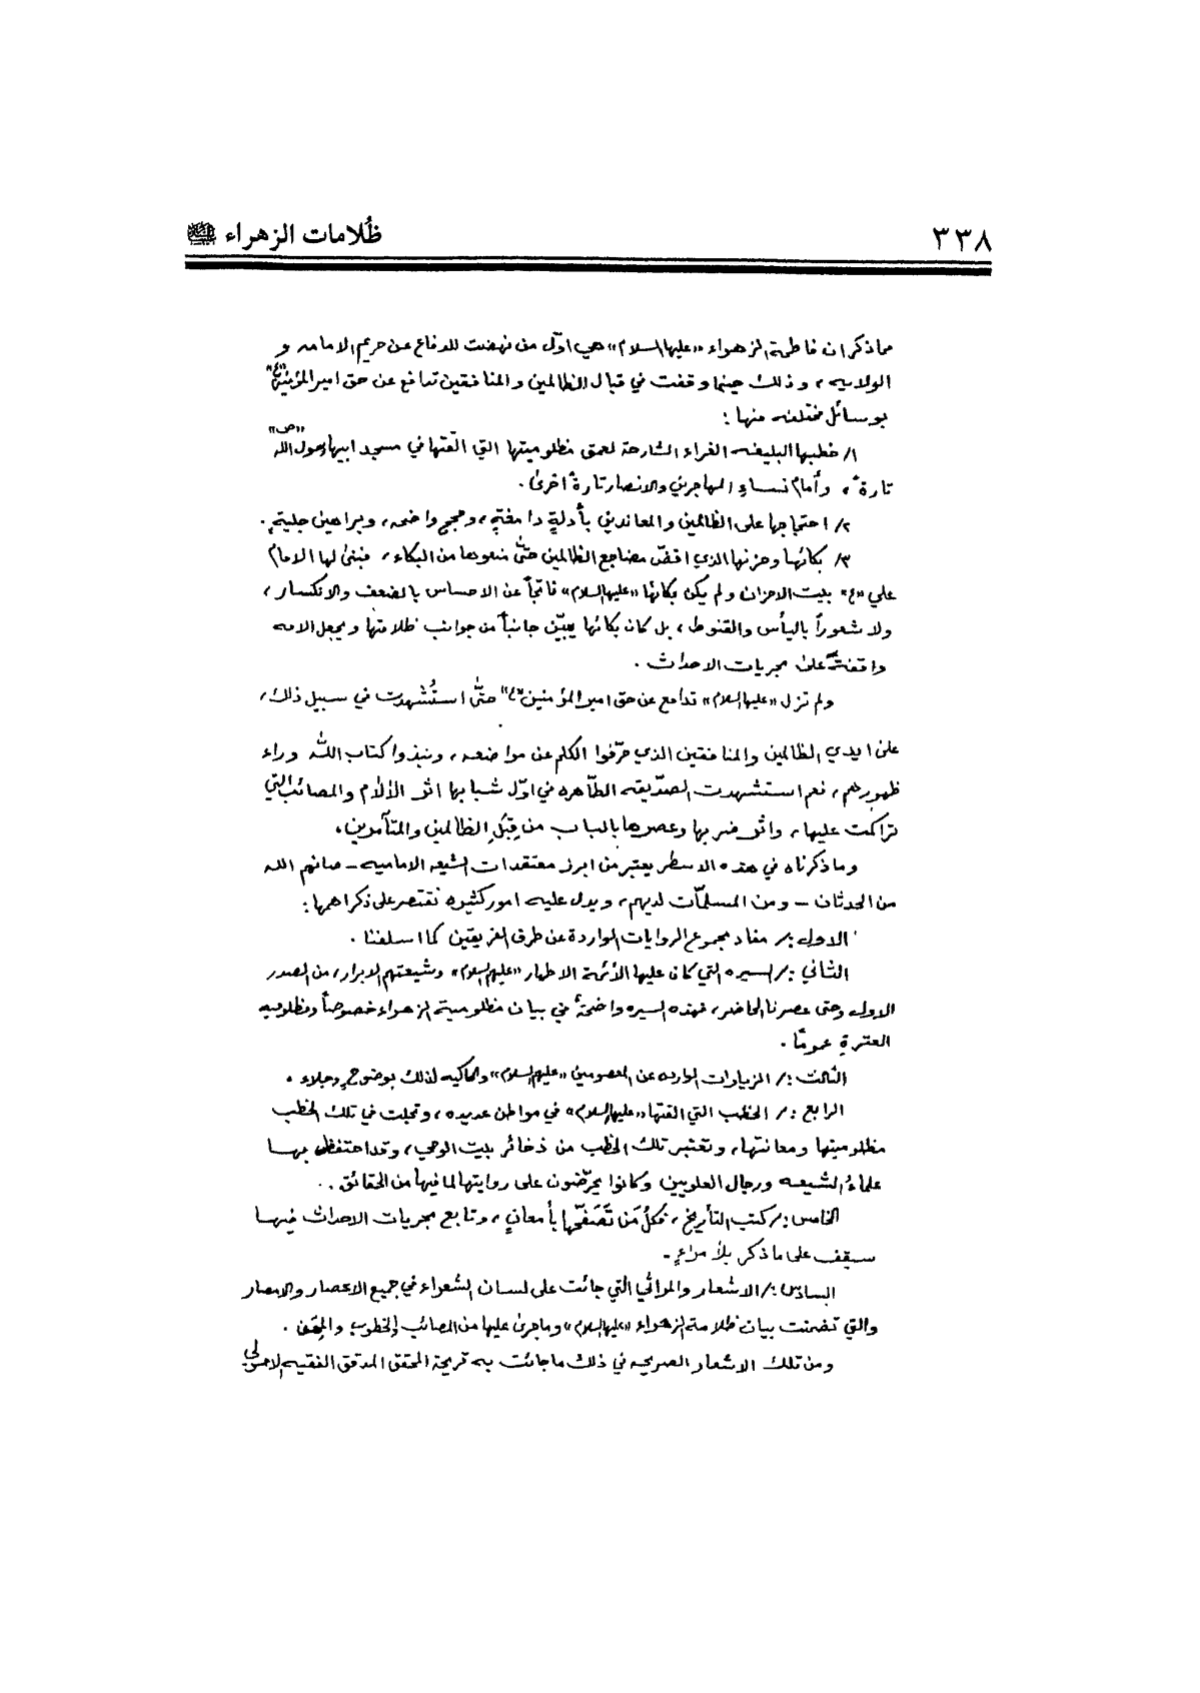 ٣٣٨
ظُلامات الزهراء
مما ذكر ان فاطمة الزهراء «عليها السلام» هي اوّل من نهضت للدفاع عن حريم الامامه و
الولايه، وذلك حينما وقفت في قبال الظالمين والمنافقين تدافع عن حق امير المؤمنين «ع»
بوسائل مختلفه منها:
١/ خطبها البليغه الغراء الشارحة لعمق مظلوميتها التي القتها في مسجد ابيها رسول الله «ص»
تارةً، وأمام نساءِ المهاجرين والانصار تارةً اخرىٰ.
٢/ احتجاجها على الظالمين والمعاندين بأدلةٍ دامغةٍ، وحججٍ واضحه، وبراهين جليّةٍ.
٣/ بكائها وحزنها الذي اقضّ مضاجع الظالمين حتّىٰ منعوها من البكاء، فبنىٰ لها الامام
علي «ع» بيت الاحزان ولم يكن بكائها «عليها السلام» ناتجاً عن الاحساس بالضعف والانكسار،
ولا شعوراً باليأس والقنوط، بل كان بكائها يبيّن جانباً من جوانب ظلامتها ويجعل الامه
واقفةً علىٰ مجريات الاحداث.
ولم تزل «عليها السلام» تدافع عن حق امير المؤمنين «ع» حتّىٰ استُشهدت في سبيل ذلك،
علىٰ ايدي الظالمين والمنافقين الذي حرّفوا الكلم عن مواضعه، ونبذوا كتاب اللّٰه وراء
ظهورهم، نعم استشهدت الصدّيقه الطّاهره في اوّل شبابها اثر الألآم والمصائب التي
تراكمت عليها، واثر ضربها وعصرها بالباب من قِبَلِ الظالمين والمتآمرين.
وما ذكرناه في هذه الاسطر يعتبر من ابرز معتقدات الشيعه الاماميه - صانهم الله
من الحدثان - ومن المسلمّات لديهم، ويدل عليه امور كثيره نقتصر على ذكر اهمها:
الاول :/ مفاد مجموع الروايات الواردة عن طرق الفريقين كما اسلفنا.
الثاني :/ السيره التي كان عليها الأئمة الاطهار «عليهم السلام» وشيعتهم الابرار، من الصدر
الاول وحتى عصرنا الحاضر، فهذه السيره واضحةٌ في بيان مظلومية الزهراء خصوصاً ومظلوميه
العترةِ عمومًا.
الثالث :/ الزيارات الوارده عن المعصومين «عليهم السلام» والحاكيه لذلك بوضوحٍ وجلاء.
الرابع :/ الخطب التي القتها «عليها السلام» في مواطن عديده، وتجلت في تلك الخطب
مظلوميتها ومعاناتها، وتعتبر تلك الخطب من ذخائر بيت الوحي، وقد احتفظ بها
علماءُ الشيعه ورجال العلويين وكانوا يحرّضون على روايتها لما فيها من الحقائق.
الخامس :/ كتب التأريخ، فكلُ مَن تَصَفّحها بأمعانٍ، وتابع مجريات الاحداث فيها
سيقف على ما ذكر بلا مراءٍ.
السادس :/ الاشعار والمراثي التي جائت على لسان الشعراء في جميع الاعصار والامصار
والتي تضمنت بيان ظلامة الزهراء «عليها السلام» وماجرىٰ عليها من المصائب والخطوب والمحن.
ومن تلك الاشعار الصريحه في ذلك ما جائت به قريحة المحقق المدقق الفقيه الاصولي